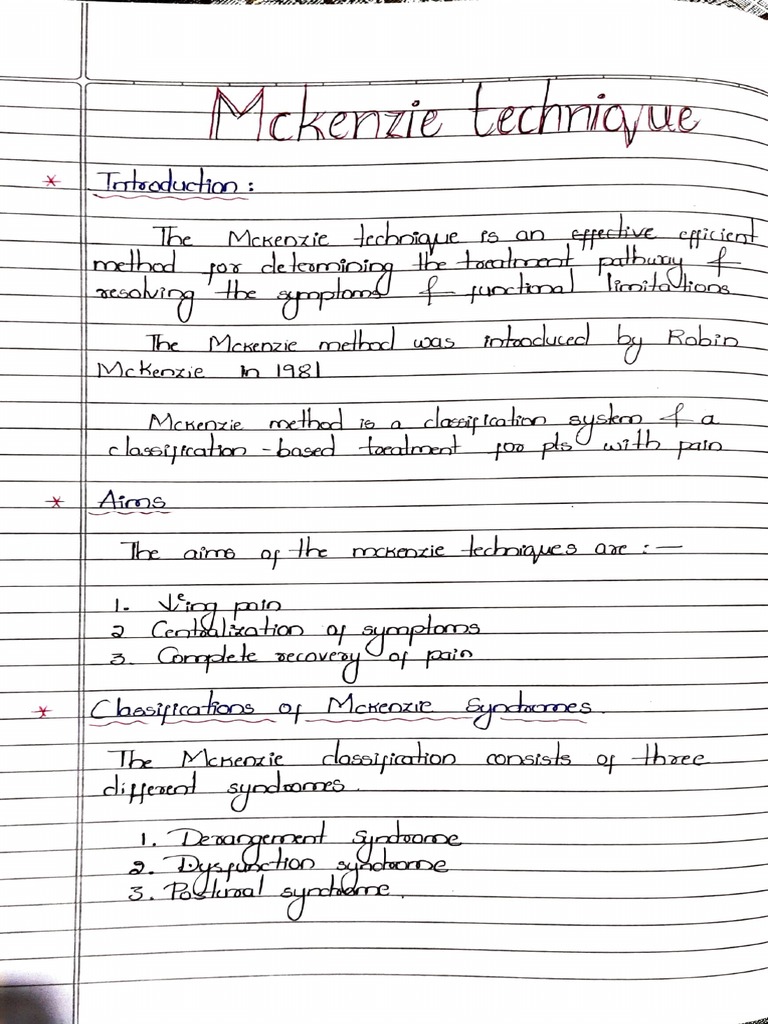 Mckenzie technique
* Introduction :
The McKenzie technique is an effective efficient
method for determining the treatment pathway &
resolving the symptoms & functional limitations
The McKenzie method was introduced by Robin
McKenzie in 1981
McKenzie method is a classification system & a
classification - based treatment for pts with pain
* Aims
The aims of the mckenzie techniques are : —
1. ↓eing pain
2 Centralization of symptoms
3. Complete recovery of pain
* Classifications of McKenzie Syndromes.
The McKenzie classification consists of three
different syndromes.
1. Derangement Syndrome
2. Dysfunction syndrome
3. Postural syndrome.